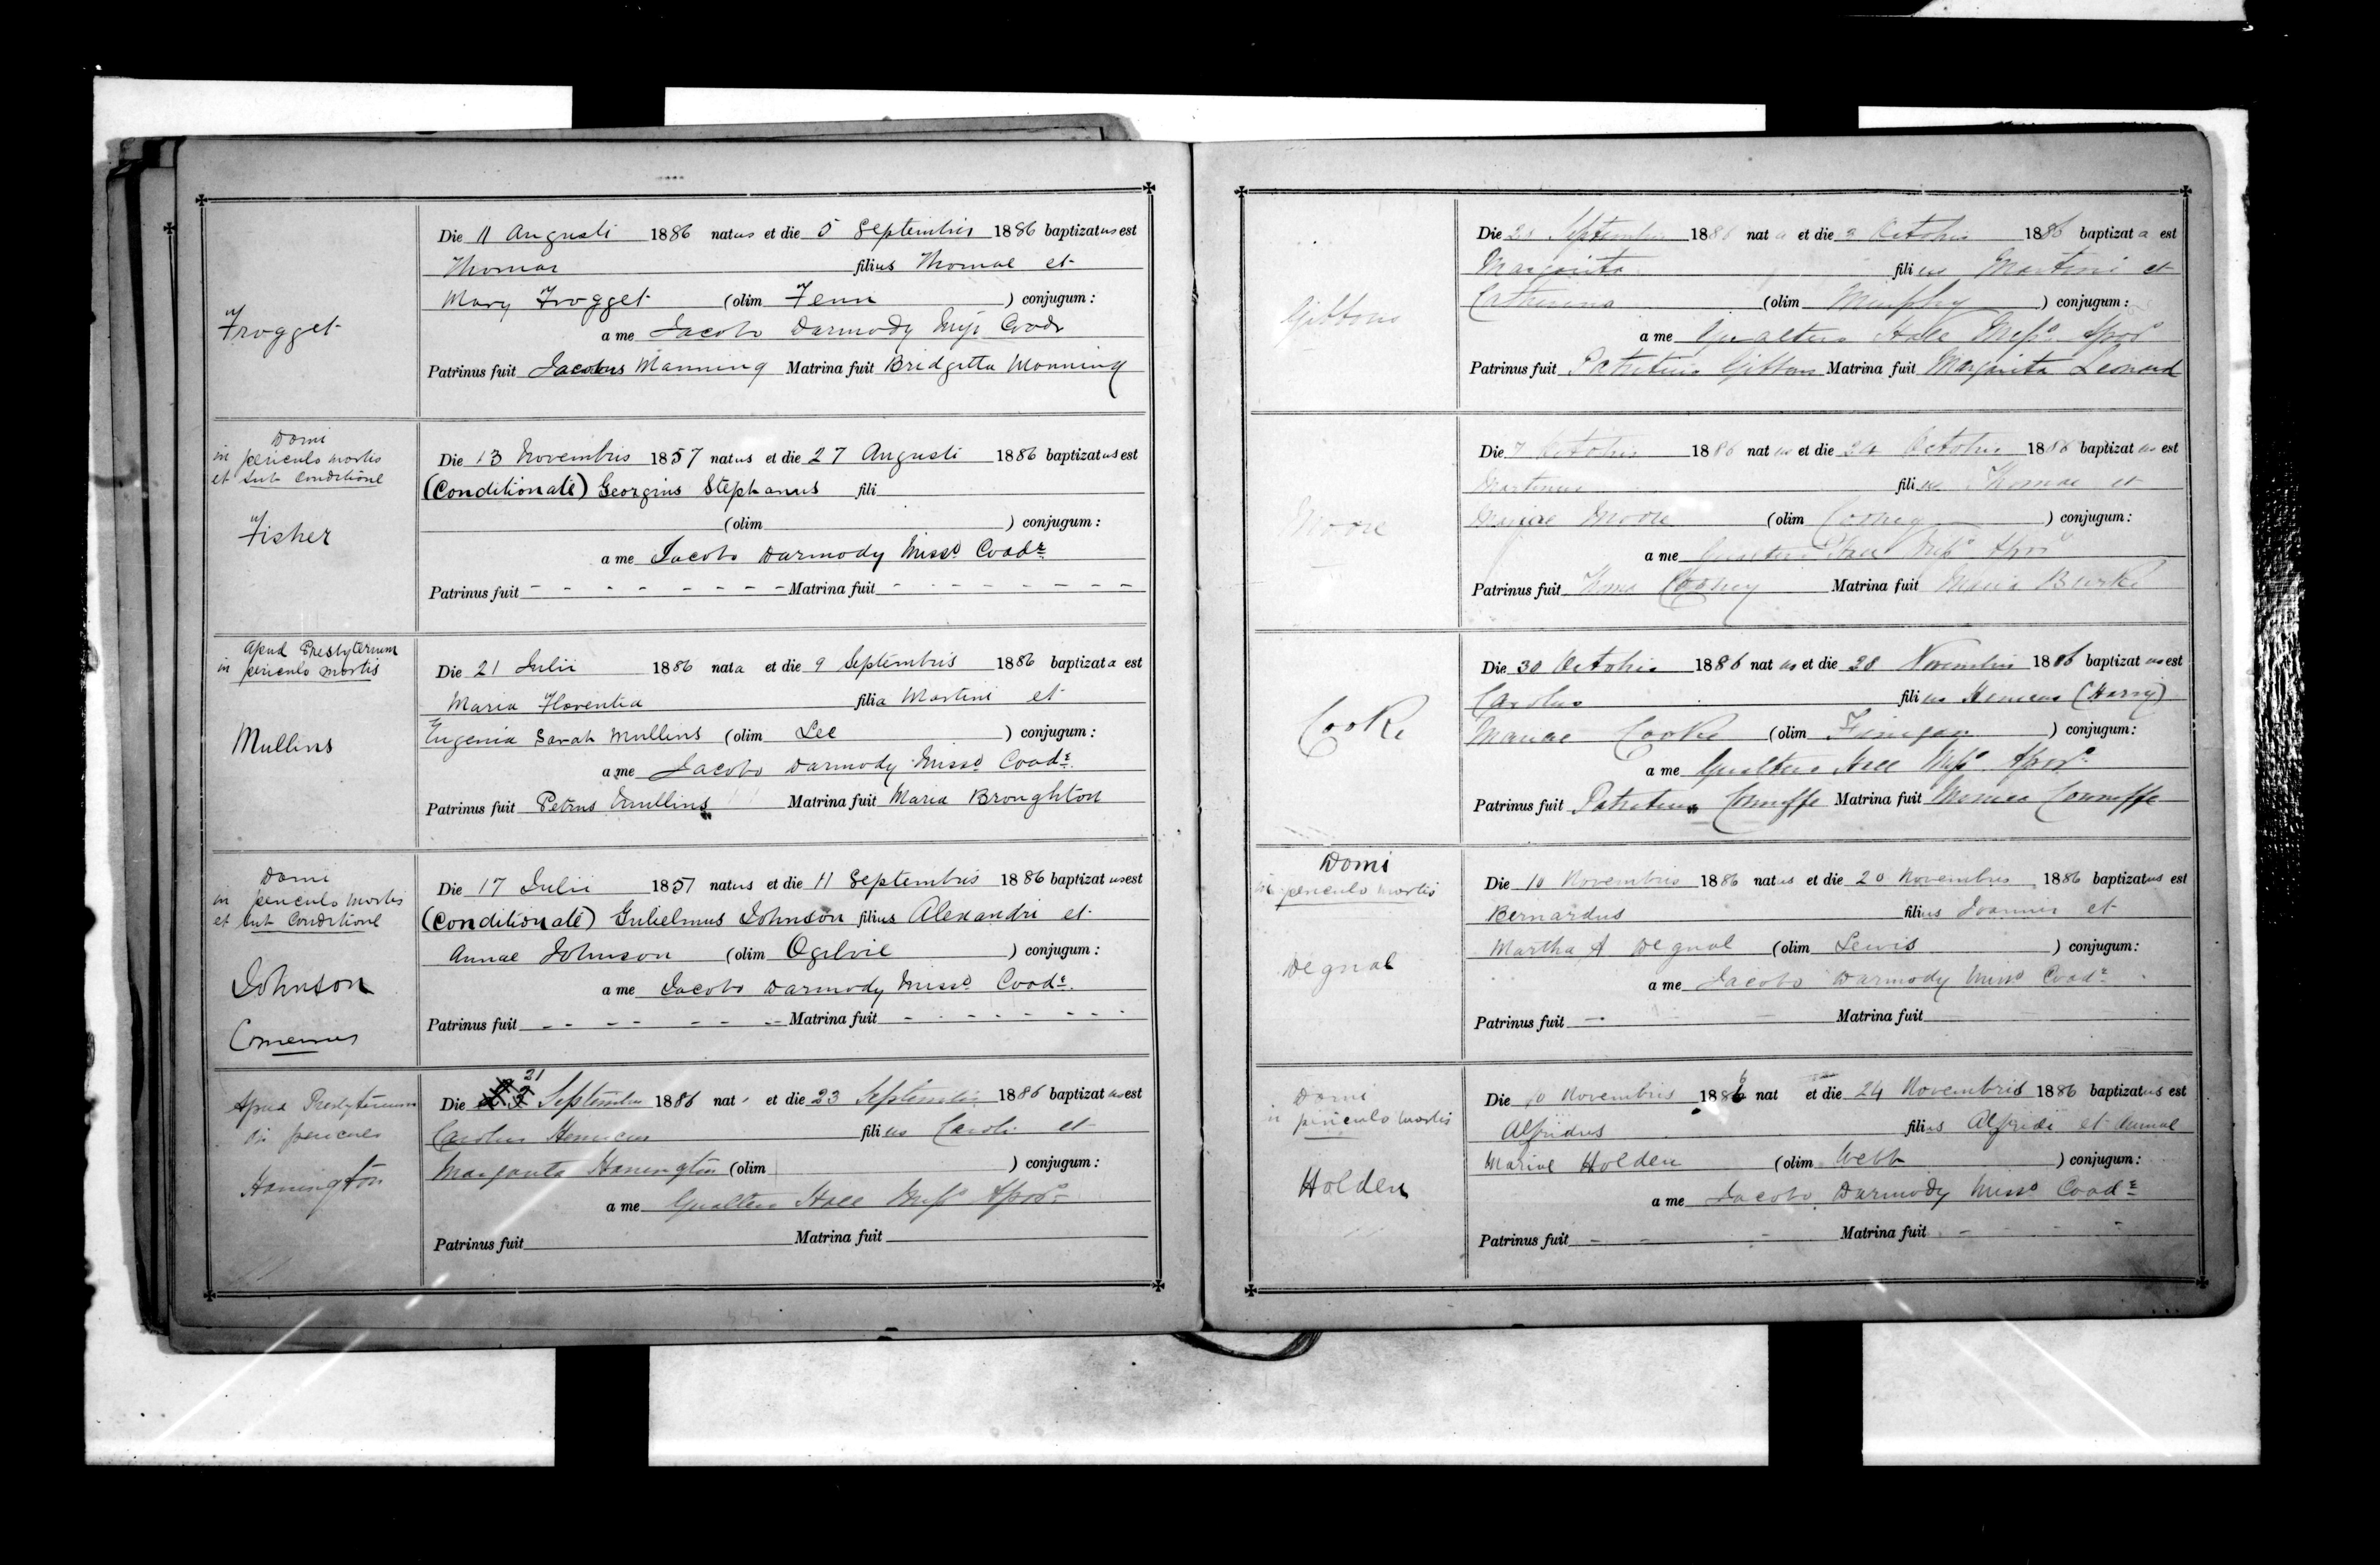 Frogget
Die 11 Augusti 1886 natus et die 5 Septembris 1886 baptizatus est
Thomas filius Thomae et
Mary Frogget (olim Fenn ) conjugum:
a me Jacobo Darmody Miss Coadr
Patrinus fuit Jacobus Manning Matrina fuit Bridgetta Manning
Domi
in periculo mortis
et sub Conditione
Fisher
Die 13 Novembris 1857 natus et die 27 Augusti 1886 baptizatus est
(Conditionate) Georgius Stephanus fili
(olim ) conjugum:
a me Jacobo Darmody Misso Coadr
Patrinus fuit - - - - - - - - Matrina fuit - - - - - - - -
Apud Presbyterium
in periculo mortis
Mullins
Die 21 Julii 1886 nata et die 9 Septembris 1886 baptizata est
Maria Florentia filia Martini et
Eugenia Sarah Mullins (olim Lee ) conjugum:
a me Jacobo Darmody Misso Coadr
Patrinus fuit Petrus Mullins Matrina fuit Maria Broughton
Domi
in periculo mortis
et sub Conditione
Johnson
Die 17 Julii 1857 natus et die 11 Septembris 1886 baptizatus est
(Conditionate) Gulielmus Johnson filius Alexandri et
Annae Johnson (olim Ogilvie ) conjugum:
a me Jacobo Darmody Misso Coadr
Patrinus fuit - - - - - - - Matrina fuit - - - - - - -
Apud Presbyterium
in periculo
Hanington
Die 21 Septembris 1886 nat et die 23 Septembris 1886 baptizatus est
Carolus Henricus filius Caroli et
Margarita Hanington (olim ) conjugum:
a me Gualtero Hall Misso Apos
Patrinus fuit Matrina fuit
Gibbons
Die Septembris 1886 nata et die Octobris 1886 baptizata est
Margarita filius Martini et
Catherina (olim Murphy ) conjugum:
a me Gualtero Hall Misso Apos
Patrinus fuit Patritius Gibbons Matrina fuit Margarita Leonard
Moore
Die 7 Octobris 1886 natus et die 24 Octobris 1886 baptizatus est
Martinus filius Thomae et
Mariae Moore (olim Cooney ) conjugum:
a me Gualtero Hall Misso Apos
Patrinus fuit Cooney Matrina fuit Maria Burke
Cooke
Die 30 Octobris 1886 natus et die 28 Novembris 1886 baptizatus est
Carolus filius Henricus (Harry)
Mariae Cooke (olim Finigan ) conjugum:
a me Gualtero Hall Misso Apos
Patrinus fuit Patritius Connuffe Matrina fuit Connuffe
Domi
in periculo mortis
Degnal
Die 10 Novembris 1886 natus et die 20 Novembris 1886 baptizatus est
Bernardus filius Joannis et
Martha A Degnal (olim Lewis ) conjugum:
a me Jacobo Darmody Misso Coadr
Patrinus fuit - Matrina fuit
Domi
in periculo mortis
Holden
Die 10 Novembris 1886 nat et die 24 Novembris 1886 baptizatus est
Alfridus filius Alfridi et Annae
Mariae Holden (olim Webb ) conjugum:
a me Jacobo Darmody Misso Coadr
Patrinus fuit - - - Matrina fuit - - -